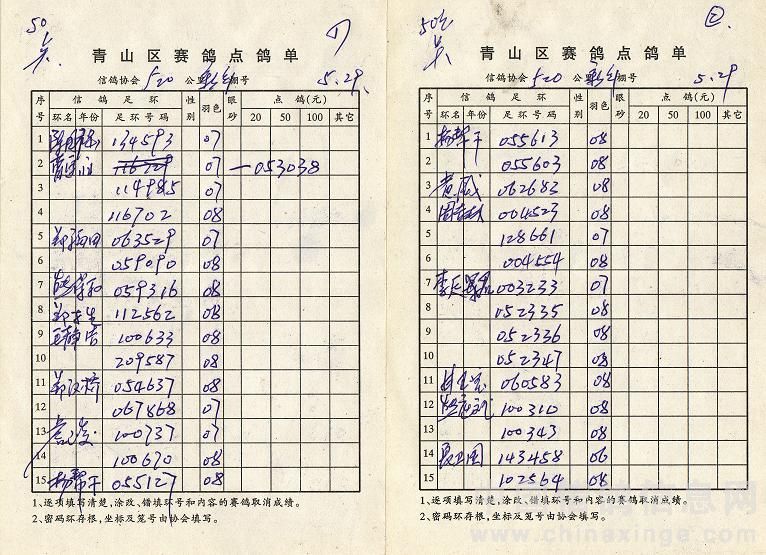 50
①
青山区赛鸽点鸽单
信鸽协会 520 公里 棚号 5.29
序号 信鸽足环 性别 羽色 眼砂 点鸽(元)
环名 年份 足环号码 20 50 100 其它
1 134593 07
2 07 — 053038
3 114985 07
4 116702 08
5 063529 07
6 059090 08
7 059316 08
8 112562 08
9 100633 08
10 209587 08
11 郑汉桥 054637 08
12 067868 07
13 100737 07
14 100670 08
15 杨帮干 055127 08
1、逐项填写清楚,涂改、错填环号和内容的赛鸽取消成绩。
2、密码环存根,坐标及笼号由协会填写。
50
②
青山区赛鸽点鸽单
信鸽协会 520 公里 棚号 5.29
序号 信鸽足环 性别 羽色 眼砂 点鸽(元)
环名 年份 足环号码 20 50 100 其它
1 杨帮干 055613 08
2 055603 08
3 062683 08
4 004523 08
5 128661 07
6 004554 08
7 003233 07
8 052335 08
9 052336 08
10 052347 08
11 060583 08
12 100310 08
13 100343 08
14 聂卫国 143458 06
15 102564 08
1、逐项填写清楚,涂改、错填环号和内容的赛鸽取消成绩。
2、密码环存根,坐标及笼号由协会填写。
www.chinaxinge.com